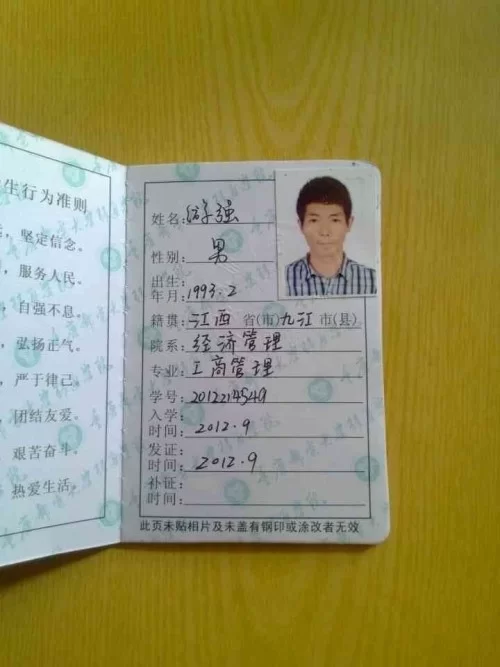 生行为准则
坚定信念。
服务人民。
自强不息。
弘扬正气。
严于律己。
团结友爱。
艰苦奋斗。
热爱生活。
姓名:强
性别: 男
出生
年月: 1993.2
籍贯: 江西 省(市) 九江 市(县)
院系: 经济管理
专业: 工商管理
学号: 2012214549
入学
时间: 2012.9
发证
时间: 2012.9
补证
时间:
此页未贴相片及未盖有钢印或涂改者无效